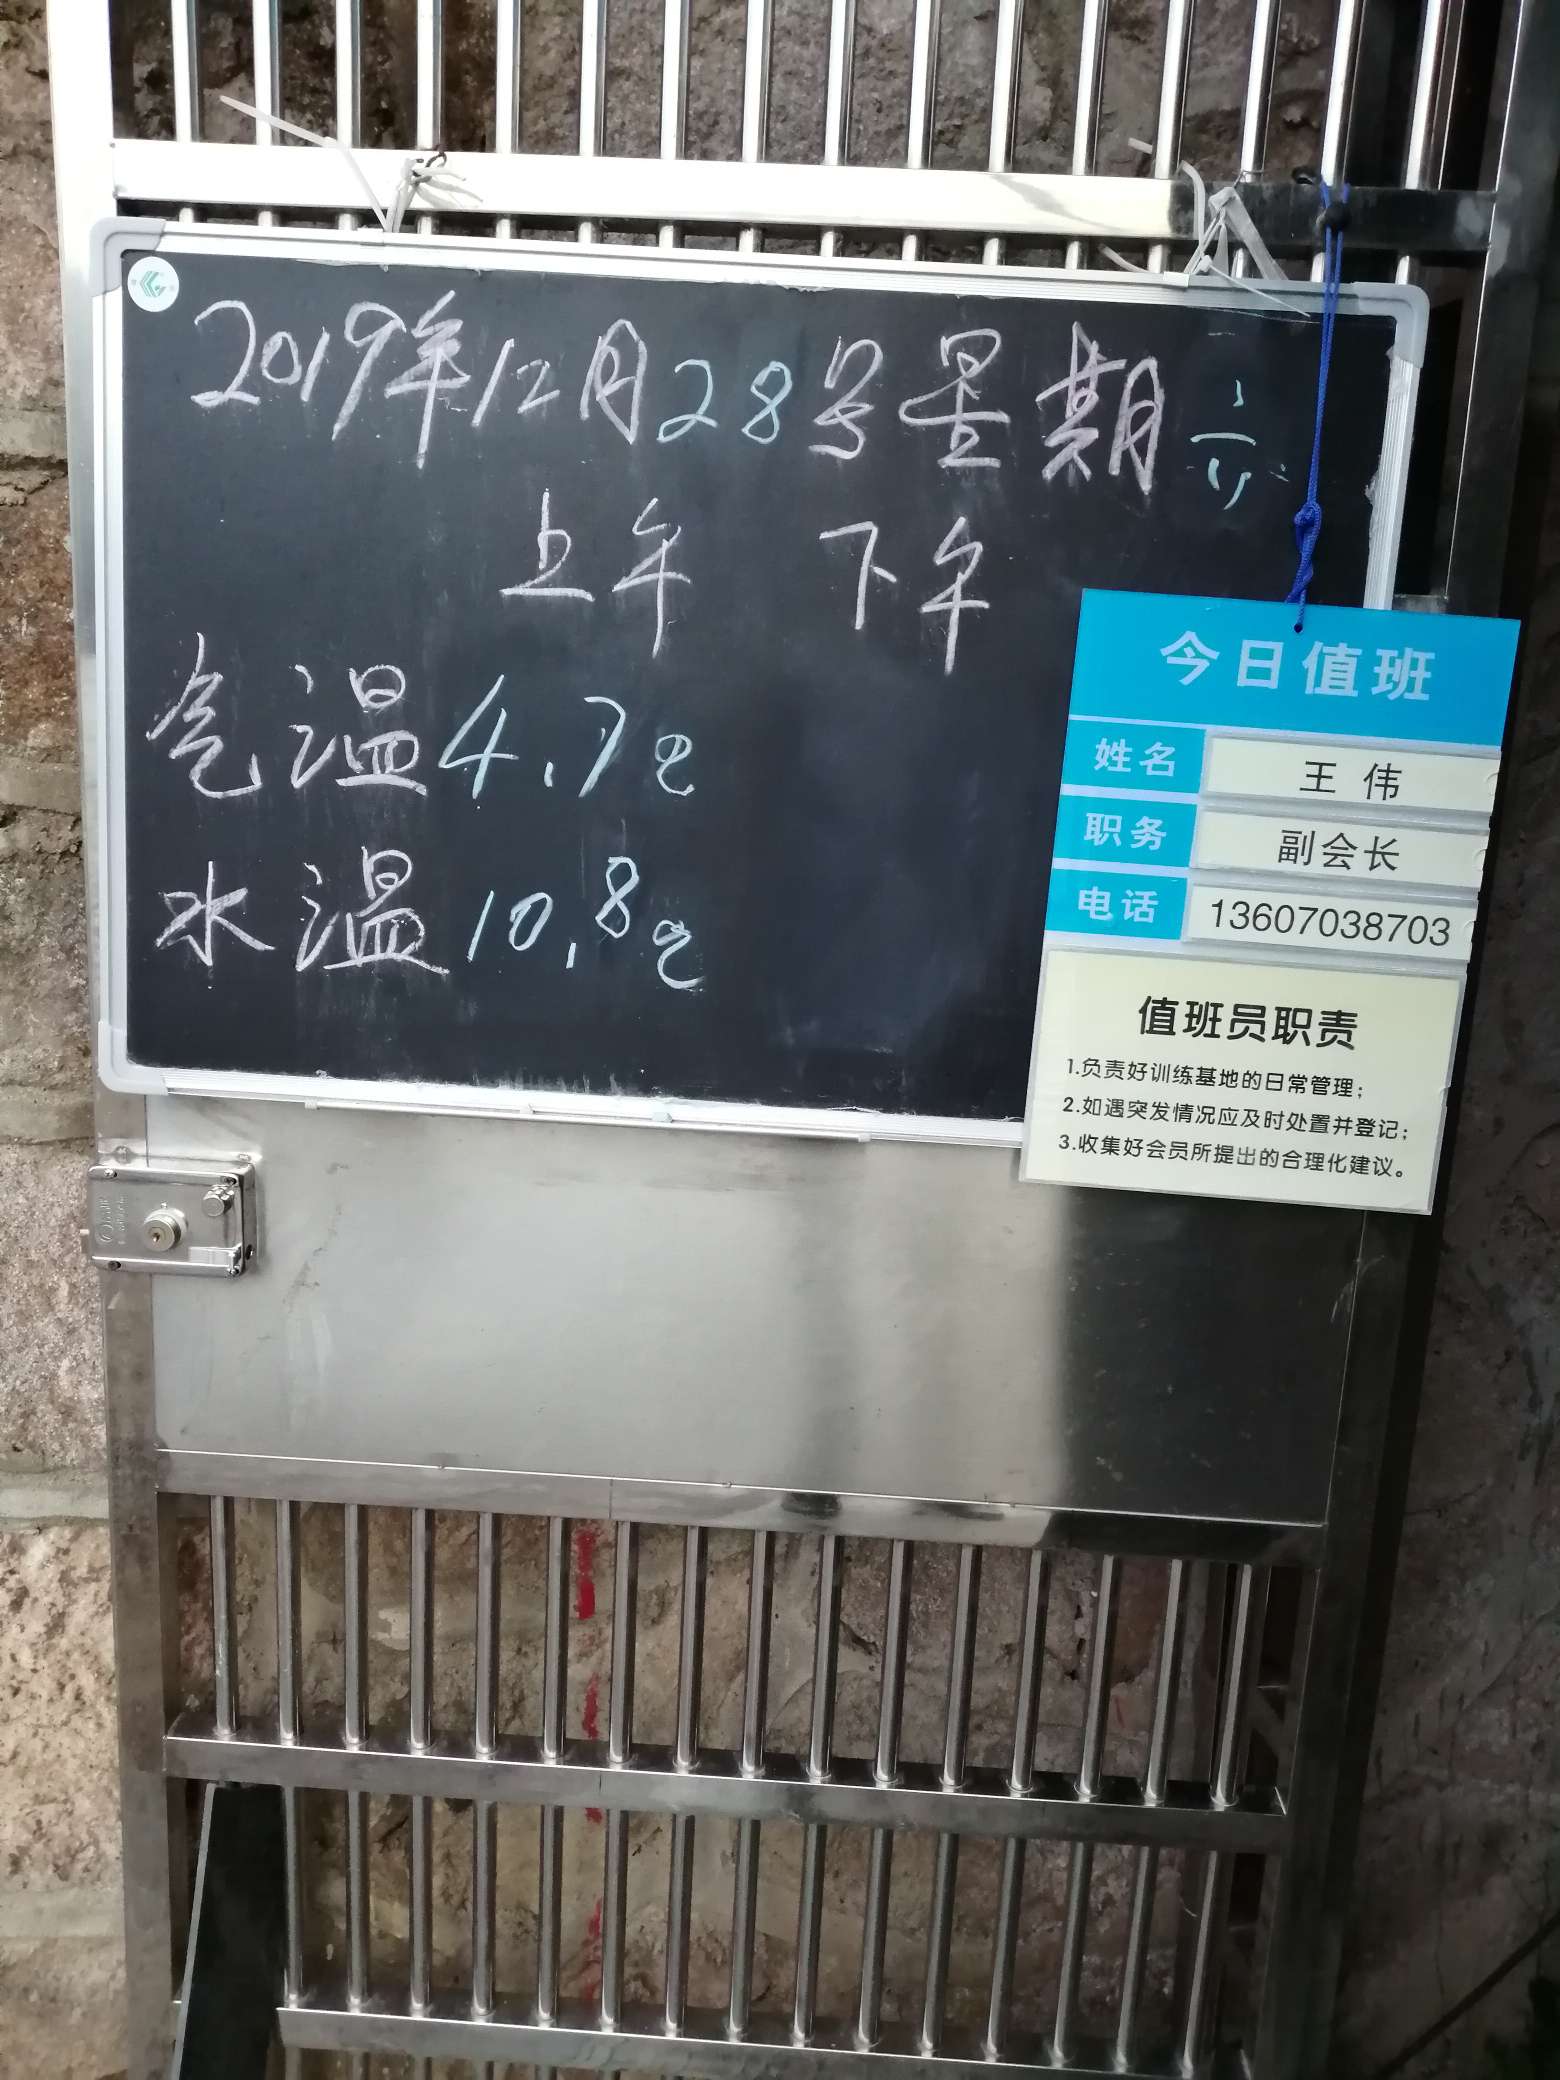 2019年12月28号星期六
上午 下午
气温4.7℃
水温10.8℃
今日值班
姓名 王伟
职务 副会长
电话 13607038703
值班员职责
1.负责好训练基地的日常管理;
2.如遇突发情况应及时处置并登记;
3.收集好会员所提出的合理化建议。